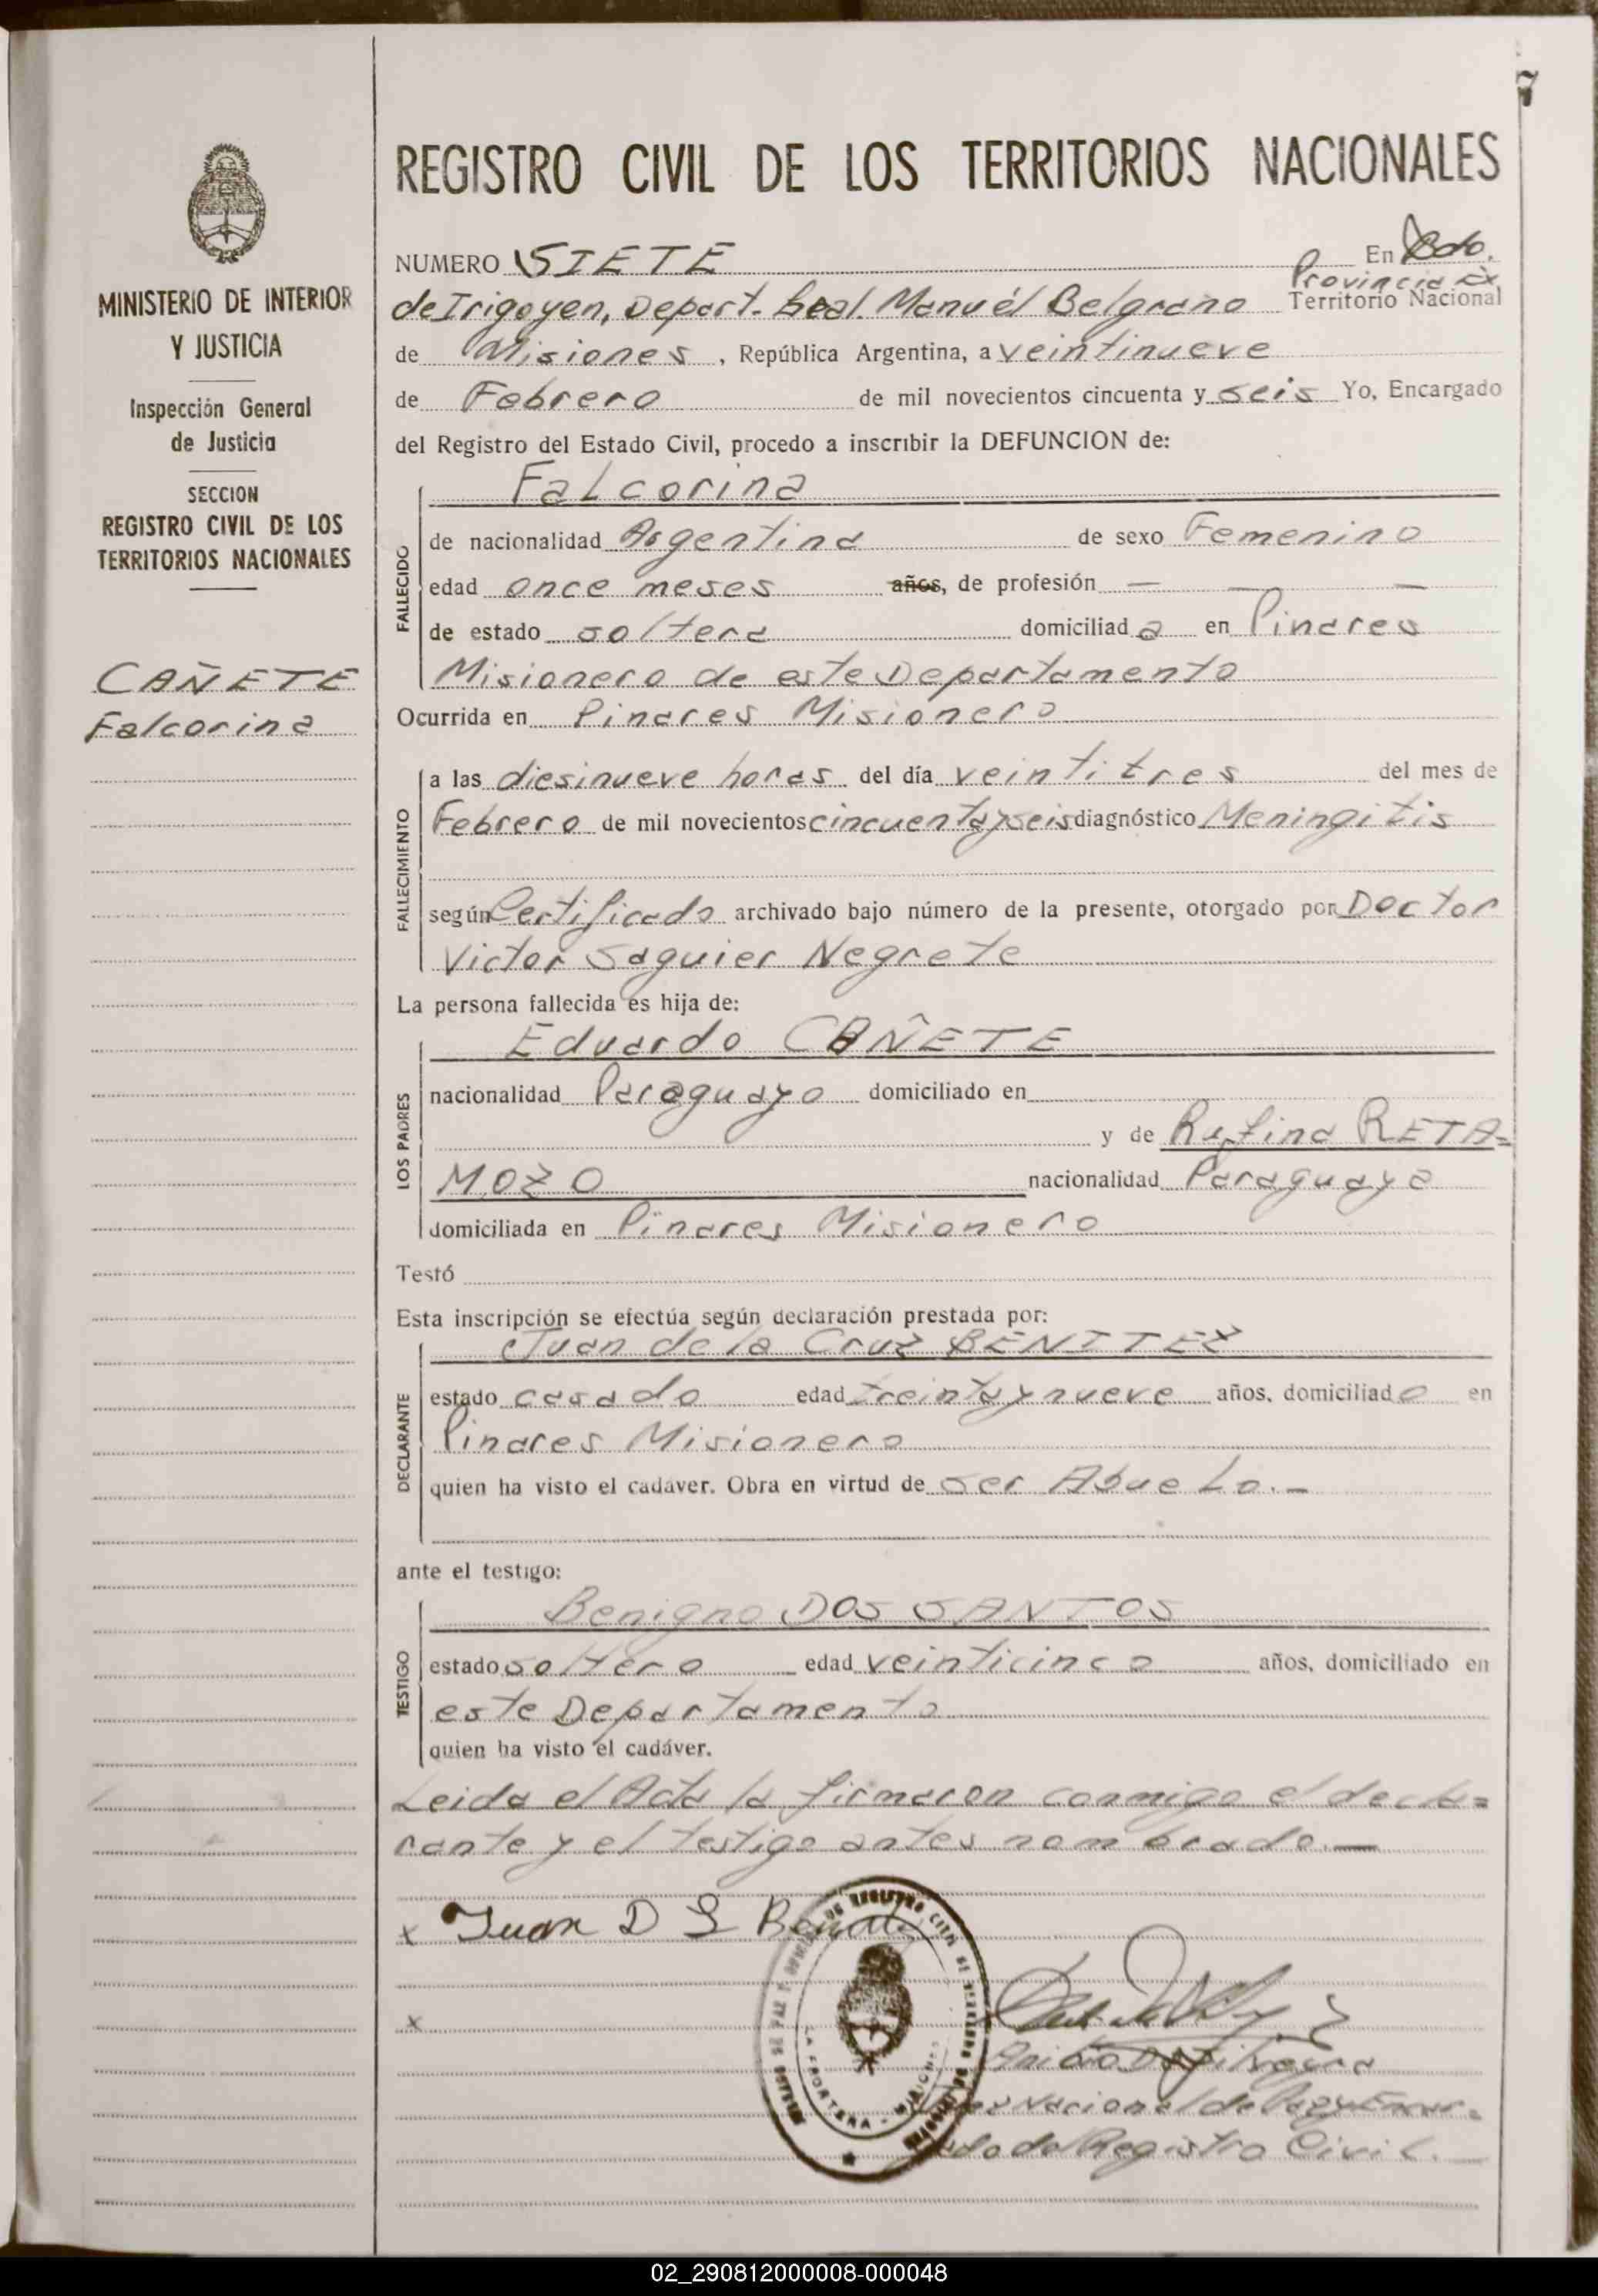 7
REGISTRO CIVIL DE LOS TERRITORIOS NACIONALES
MINISTERIO DE INTERIOR
Y JUSTICIA
Inspección General
de Justicia
SECCION
REGISTRO CIVIL DE LOS
TERRITORIOS NACIONALES
CAÑETE
Falcorina
NUMERO SIETE En Bdo.
Provincia Ex
de Irigoyen, Depart. Gral. Manuél Belgrano Territorio Nacional
de Misiones, República Argentina, a veintinueve
de Febrero de mil novecientos cincuenta y seis Yo, Encargado
del Registro del Estado Civil, procedo a inscribir la DEFUNCION de:
Falcorina
FALLECIDO
de nacionalidad Argentina de sexo Femenino
edad once meses años, de profesión — —
de estado soltera domiciliad a en Pinares
Misionero de este Departamento
Ocurrida en Pinares Misionero
FALLECIMIENTO
a las diesinueve horas del día veintitres del mes de
Febrero de mil novecientos cincuenta y seis diagnóstico Meningitis
según Certificado archivado bajo número de la presente, otorgado por Doctor
Victor Saguier Negrete
La persona fallecida es hija de:
LOS PADRES
Eduardo CAÑETE
nacionalidad Paraguayo domiciliado en
y de Rufina RETA=
MOZO nacionalidad Paraguaya
domiciliada en Pinares Misionero
Testó
Esta inscripción se efectúa según declaración prestada por:
DECLARANTE
Juan de la Cruz BENITEZ
estado casado edad treinta y nueve años, domiciliado en
Pinares Misionero
quien ha visto el cadáver. Obra en virtud de ser Abuelo.—
ante el testigo:
TESTIGO
Benigno DOS SANTOS
estado soltero edad veinticinco años, domiciliado en
este Departamento
quien ha visto el cadáver.
Leida el Acta la firmaron conmigo el decla=
rante y el testigo antes nombrado.—
x Juan D L Benitez
x
Nacional de Paz y Encar=
gado del Registro Civil.
02_290812000008-000048